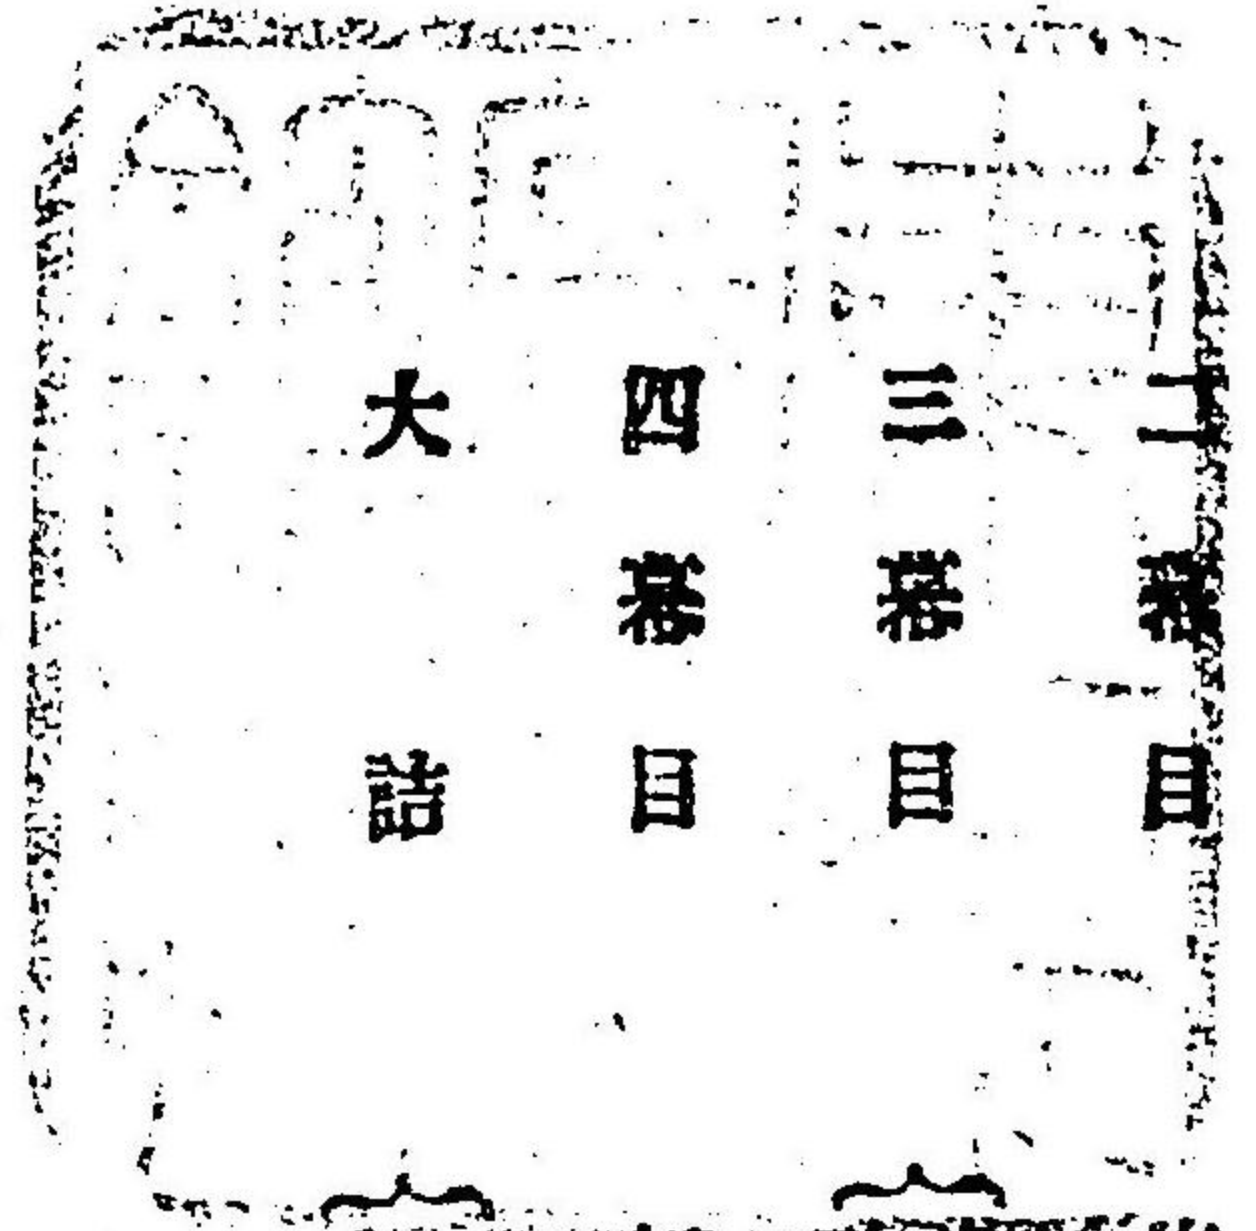 二幕目
三幕目
四幕目
大詰